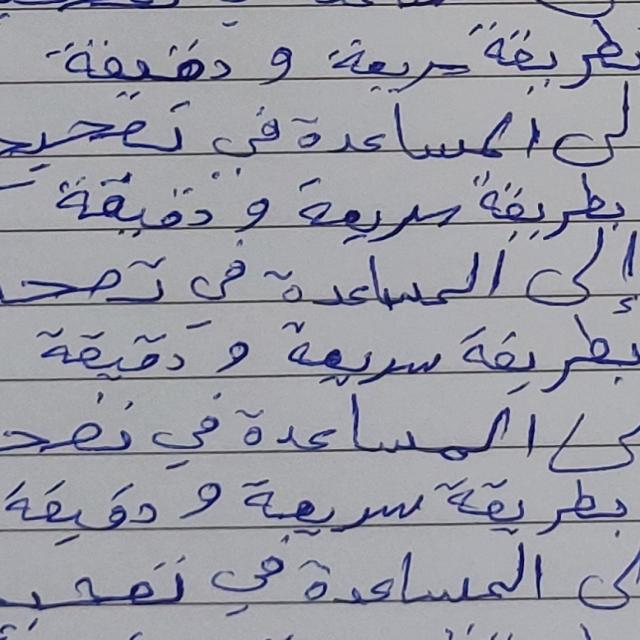 بطريقة سريعة و دقيقة
لى المساعدة في تصحيح
بطريقة سريعة و دقيقة
إلى المساعدة في تصحـ
بطريقة سريعة و دقيقة
لى المساعدة في تصحـ
بطريقة سريعة و دقيقة
لى المساعدة في تصحيـ